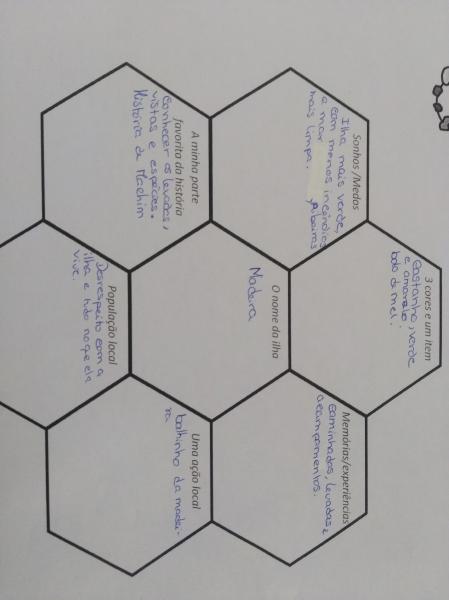 3 cores e um item
Castanho, verde
e amarelo.
bolo de mel.
Sonhos /Medos
Ilha mais verde,
com menos incêndios
e mar Ribeiras
mais limpa.
Memórias/experiências
caminhadas, levadas e
acampamentos.
O nome da ilha
Madeira
A minha parte
favorita da história
Conhecer as levadas,
vistas e espécies.
História de Machim
Uma ação local
bailinho da madei-
ra
População local
Desrespeito com a
ilha e tudo no que ela
vive.